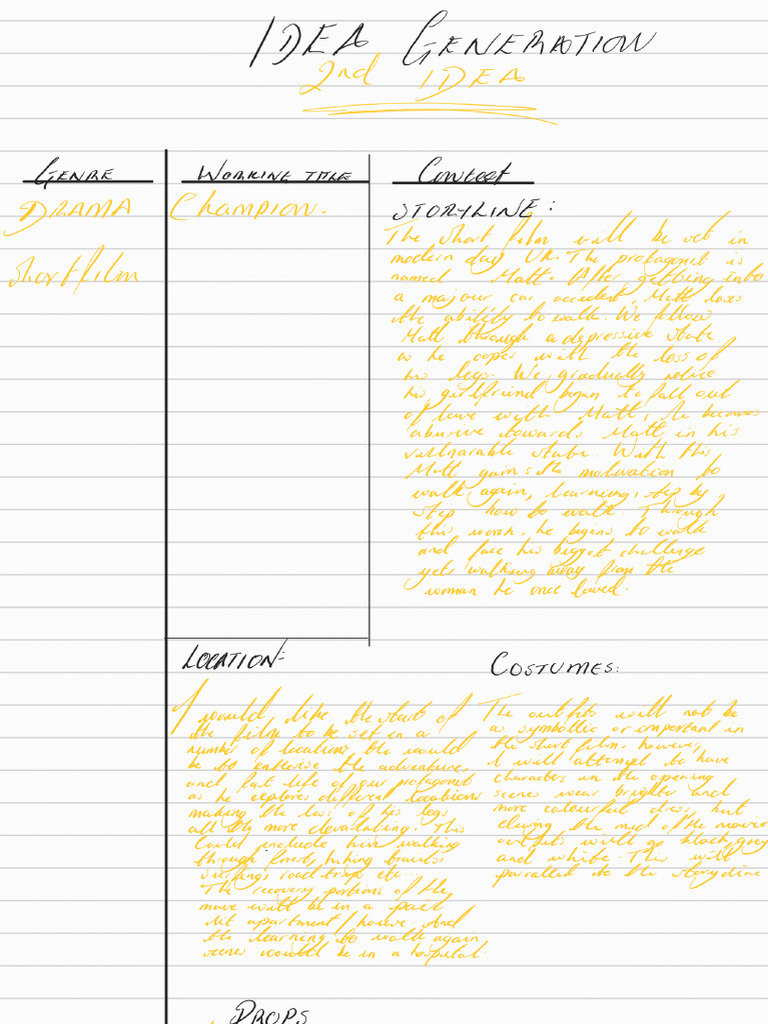 IDEA GENERATION
2nd IDEA
GENRE
DRAMA
Short film
WORKING TITLE
Champion.
Context
STORYLINE:
The short film will be set in
modern day UK. The protagonist is
named Matt. After getting into
a majour car accident, Matt loses
the ability to walk. We follow
Matt through a depressive state
as he copes with the loss of
his legs. We gradually notice
his girlfriend begin to fall out
of love with Matt, she becomes
abusive towards Matt in his
vulnarable state. With this
Matt gains the motivation to
walk again, learning, step by
step how to walk. Through
this work, he begins to walk
and face his biggest challenge
yet, walking away from the
woman he once loved.
LOCATION:
I would like the start of
the film to be set in a
number of locations, this would
be to enthuse the adventures
and fast life of our protagonist
as he explores different locations
making the loss of his legs
all the more devastating. This
Could include him walking
through forest, hiking
surfing, road trips etc...
The recovery portions of the
move will be in a
lit apartment/house. And
the learning to walk again
scenes would be in a hospital.
COSTUMES:
The outfits will not be
as symbollic or important in
the short film. however,
I will attempt to have
characters in the opening
scenes wear brighter and
more colourful dress, but
during the mid of the movie
outfits will go black, grey
and white. This will
parralled to the storyline
PROPS